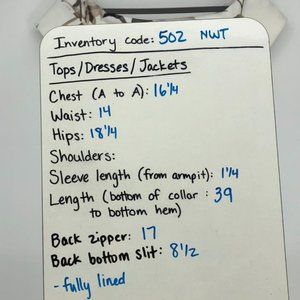 Inventory code: 502 NWT
Tops/Dresses/Jackets
Chest (A to A): 16 1/4
Waist: 14
Hips: 18 1/4
Shoulders:
Sleeve length (from armpit): 1 1/4
Length (bottom of collar : 39
to bottom hem)
Back zipper: 17
Back bottom slit: 8 1/2
- fully lined